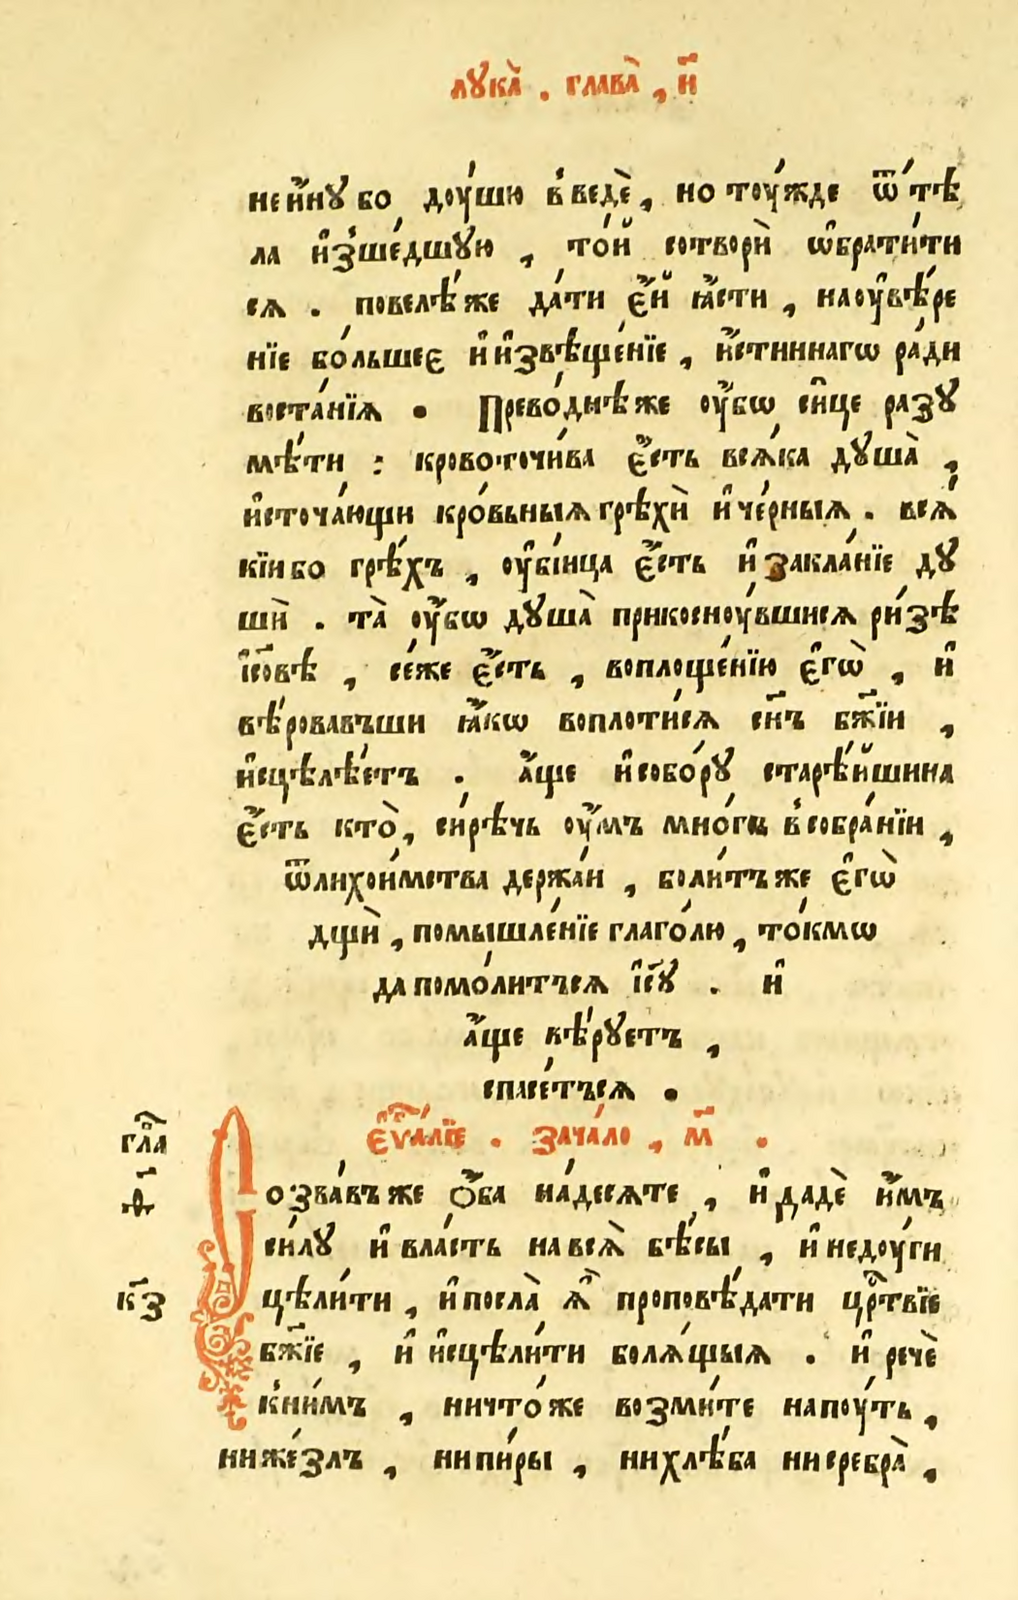 лꙋка̀ . глава̀ , и҃
не и҆́нꙋ бо доу́шю в̾ведѐ , но тоу́жде ѿ тѣ́
ла и҆з̾ше́дшꙋю , то́й сотворѝ ѡ҆брати́ти
сѧ . повелѣ́ же да́ти є҆́й ꙗ҆́сти , на оу҆вѣ́ре
нїе бо́льшеє и҆ и҆звѣще́нїе , и҆́стиннагѡ ра́ди
воста́нїѧ . Прево́днѣ же оу҆́бѡ си́це разꙋ
мѣ́ти : кровоточи́ва є҆́сть всѧ́ка дꙋша̀ ,
и҆сточа́ющи кро́вьныѧ грѣхѝ и҆ че́рныѧ . всѧ́
кїи бо грѣ́хъ , оу҆бі́ица є҆́сть и҆ закла́нїе дꙋ
шѝ . та̀ оу҆́бѡ дꙋша̀ прикосноу́вшисѧ ри́зѣ
і҆со́вѣ , се́же є҆́сть , воплоще́нїю є҆гѡ̀ , и҆
вѣ́ровавъши ꙗ҆́кѡ воплоти́сѧ сн҃ъ бж҃їи ,
и҆сцѣлѣ́етъ . а҆́ще и҆ собо́рꙋ старѣ́йшина
є҆́сть кто̀ , си́рѣчь оу҆́мъ мно́гъ в̾собра́нїи ,
ѿ лихои́мства держа́й , боли́тъ же є҆гѡ̀
дщѝ , помышле́нїе глаго́лю , то́кмѡ
да помо́литъсѧ і҆сꙋ҃ . и҆
а҆́ще вѣ́рꙋетъ ,
спасе́тъсѧ .
є҆ѵⷢ҇а́лїе . зача́ло , м҃ .
гла҃
Созва́въ же ѻ҆́ба на́десѧте , и҆ дадѐ и҆́мъ
ф҃
си́лꙋ и҆ вла́сть на всѧ̀ бѣ́сы , и҆ недоу́ги
к҃з
цѣли́ти , и҆ посла̀ ѧ҆̀ проповѣ́дати црⷭ҇твїе
бж҃їе , и҆ и҆сцѣли́ти болѧ́щыѧ . и҆ речѐ
к̾ни́мъ , ничто́же возми́те на поу́ть ,
ни же́злъ , ни пи́ры , ни хлѣ́ба ни сребра̀ ,